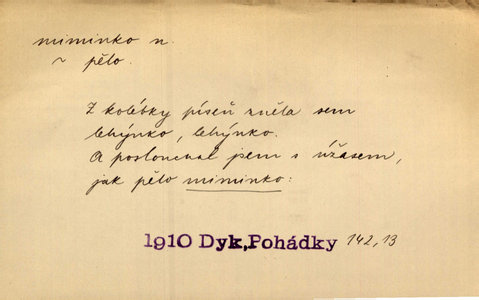 miminko n.
~ pělo.
Z kolébky píseň zněla sem
lehýnko, lehýnko.
A poslouchal jsem s úžasem,
jak pělo miminko:
1910 Dyk, Pohádky 142, 13